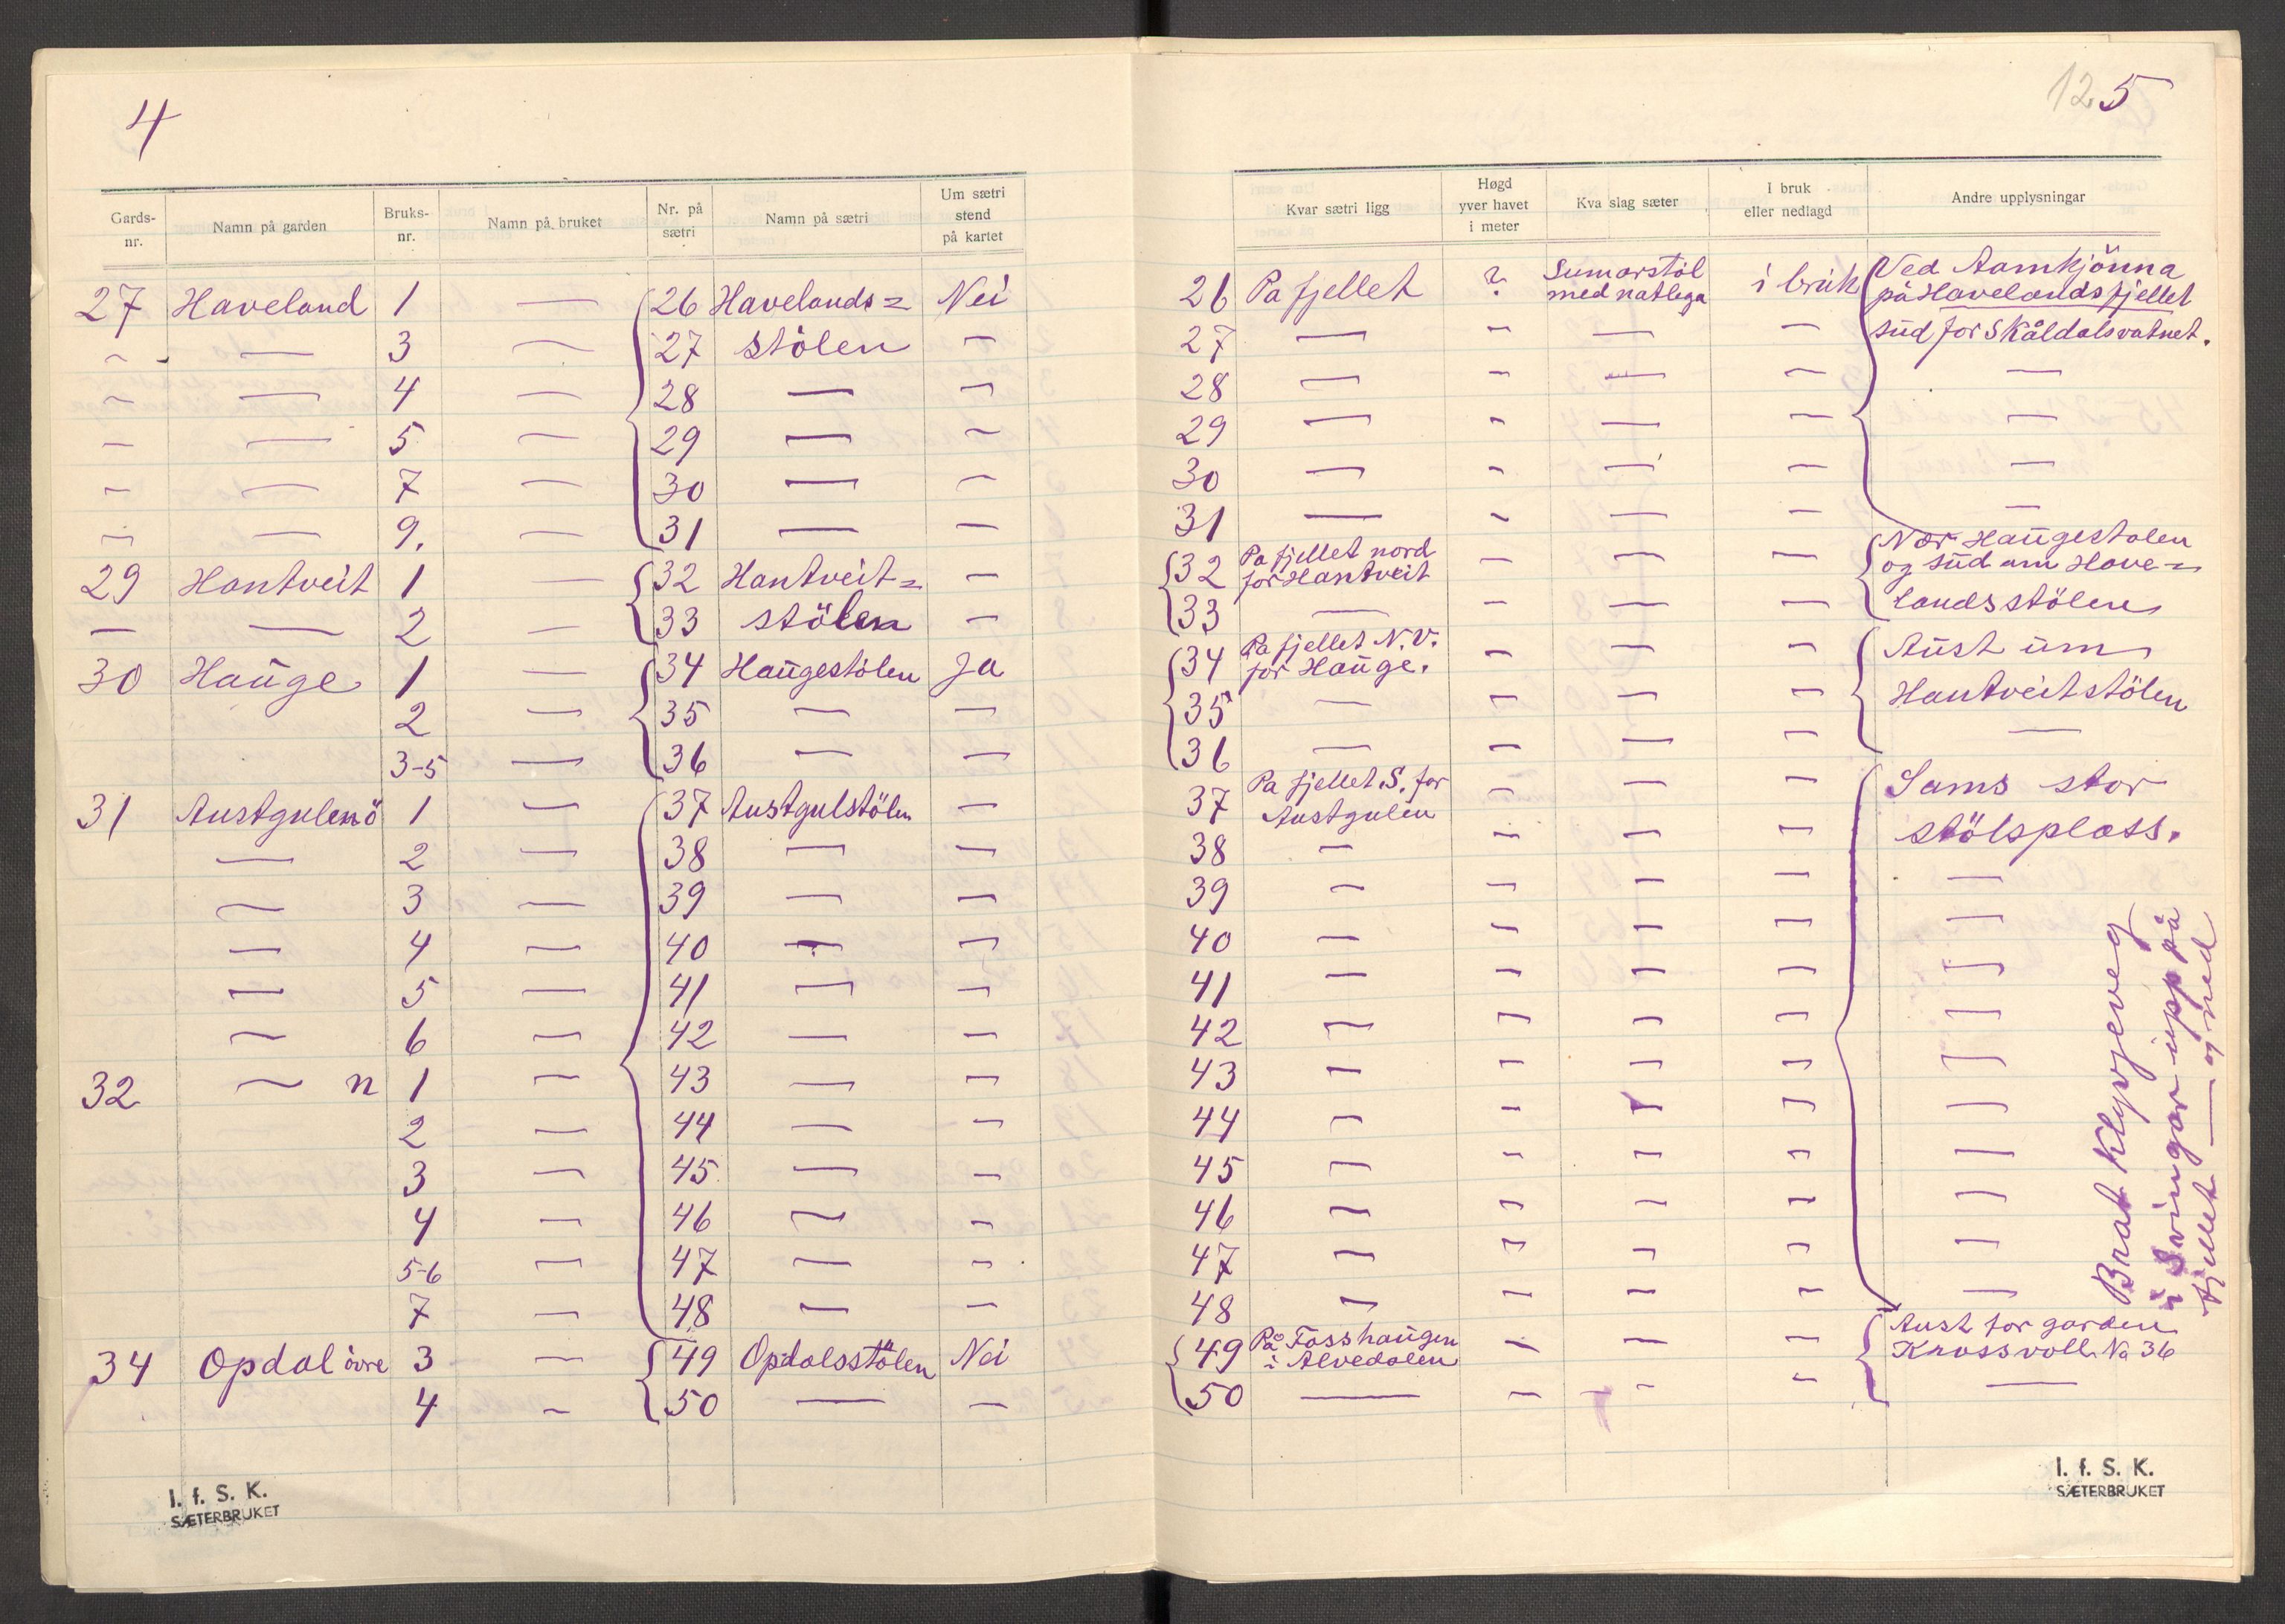 4
Gards-nr. Namn på garden Bruks-nr. Namn på bruket Nr. på sætri Namn på sætri Um sætri stend på kartet
27 Haveland 1 — 26 Havelands= Nei
- — 3 — 27 stölen —
- — 4 — 28 — —
- — 5 — 29 — —
- — 7 — 30 — —
- — 9. — 31 — —
29 Hantveit 1 — 32 Hantveit= —
— — 2 — 33 stölen —
30 Hauge 1 — 34 Haugestölen Ja
2 — 35 — —
3-5 — 36 — —
31 Austgulen ö 1 — 37 Austgulstölen —
— 2 — 38 — —
— 3 — 39 — —
— 4 — 40 — —
— 5 — 41 — —
— 6 — 42 — —
32 — n 1 — 43 — —
2 — 44 — —
3 — 45 — —
4 — 46 — —
5-6 — 47 — —
7 — 48 — —
34 Opdal övre 3 — 49 Opdalsstölen Nei
4 - 50 — —
I. f. S. K.
SÆTERBRUKET
125
Kvar sætri ligg Høgd yver havet i meter Kva slag sæter I bruk eller nedlagd Andre upplysningar
26 Pa fjellet ? Sumarstöl med natlega i bruk Ved Aamkjönna
på Havelandsfjellet
27 — - — — sud for Skåldalsvatnet.
28 — - — — —
29 — - — — —
30 — - — — —
31 — - — — —
32 Pa fjellet nord for Hantveit — — — Nær Haugestolen
og sud um Have=
33 — — — — landsstölen
34 Pa fjellet N.V. for Hauge. — — — Aust um
35 — — — — Hantveitstölen
36 — — — — —
37 Pa fjellet S. for Austgulen — — — Sams stor
38 — — — — stölsplass.
39 — — — — —
40 — — — — —
41 — — — — —
42 — — — — —
43 — — — — —
44 — — — — —
45 — — — — —
46 — — — — —
47 — — — — —
48 — — — — —
49 På Fosshaugen i Alvedalen — — — Aust for garden
Krossvoll No 36
50 — — - - —
Brat Klyvjeveg
i Svingar upp på
fjellet — og ned
I. f. S. K.
SÆTERBRUKET